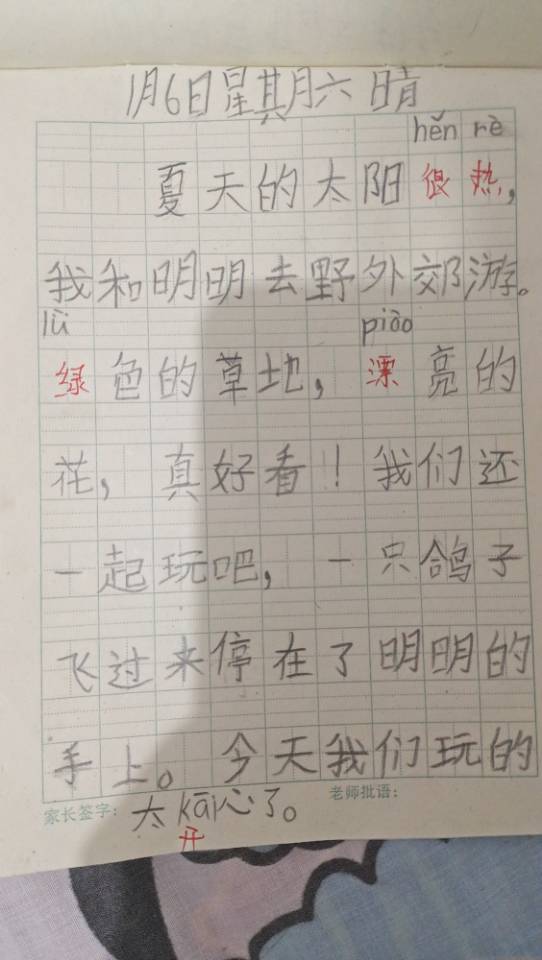 1月6日星期六 晴
hěn rè
夏天的太阳很热,
我和明明去野外郊游。
lǜ piāo
绿色的草地,漂亮的
花,真好看!我们还
一起玩吧,一只鸽子
飞过来停在了明明的
手上。今天我们玩的
家长签字: 老师批语:
太kāi心了。
开